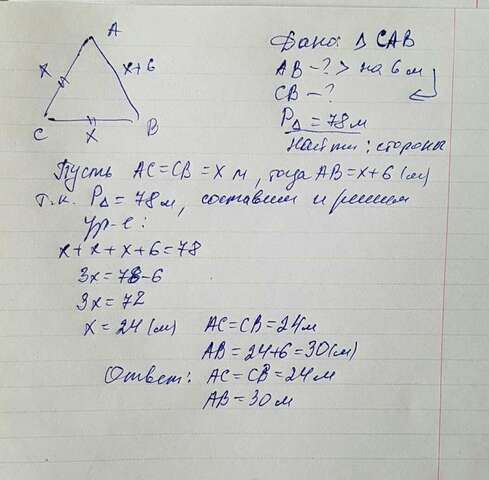 A
x
x+6
C
x
B
Дано: Δ CAB
AB - ? > на 6 м
CB - ?
PΔ = 78 м
Найти: стороны
Пусть AC = CB = x м, тогда AB = x+6 (м)
т.к. PΔ = 78 м, составим и решим
ур-е:
x + x + x + 6 = 78
3x = 78-6
3x = 72
x = 24 (м) AC = CB = 24 м
AB = 24+6 = 30 (м)
Ответ: AC = CB = 24 м
AB = 30 м